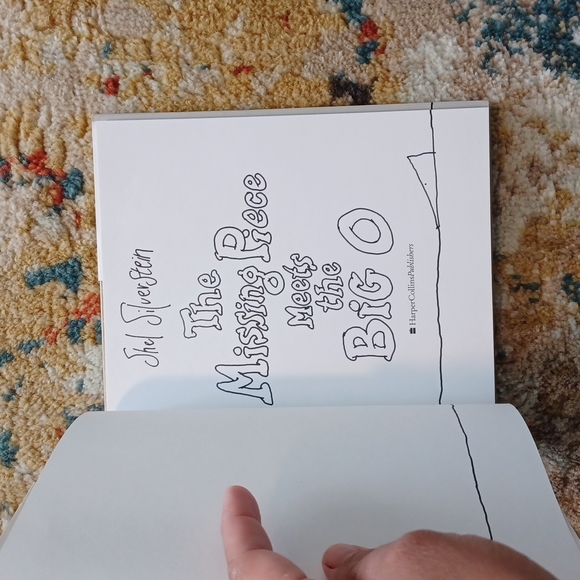 Shel Silverstein
The
Missing Piece
Meets
the
BiG O
HarperCollinsPublishers